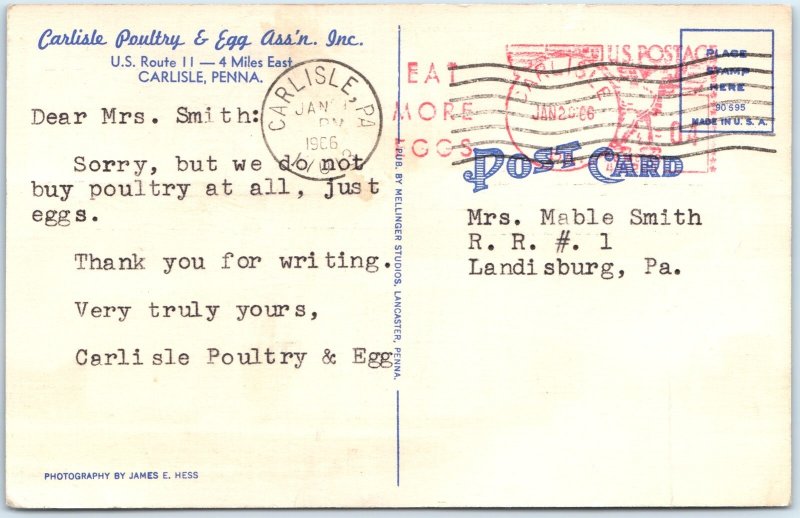 Carlisle Poultry & Egg Ass'n. Inc.
U.S. Route 11 — 4 Miles East
CARLISLE, PENNA.
Dear Mrs. Smith:
Sorry, but we do not
buy poultry at all, just
eggs.
Thank you for writing.
Very truly yours,
Carlisle Poultry & Egg
PHOTOGRAPHY BY JAMES E. HESS
PUB. BY MELLINGER STUDIOS, LANCASTER, PENNA.
CARLISLE, PA
JAN
PM
1966
EAT
MORE
EGGS
CARLISLE
JAN 20 66
U.S. POSTAGE
PLACE
STAMP
HERE
90595
MADE IN U. S. A.
POST CARD
Mrs. Mable Smith
R. R. #. 1
Landisburg, Pa.